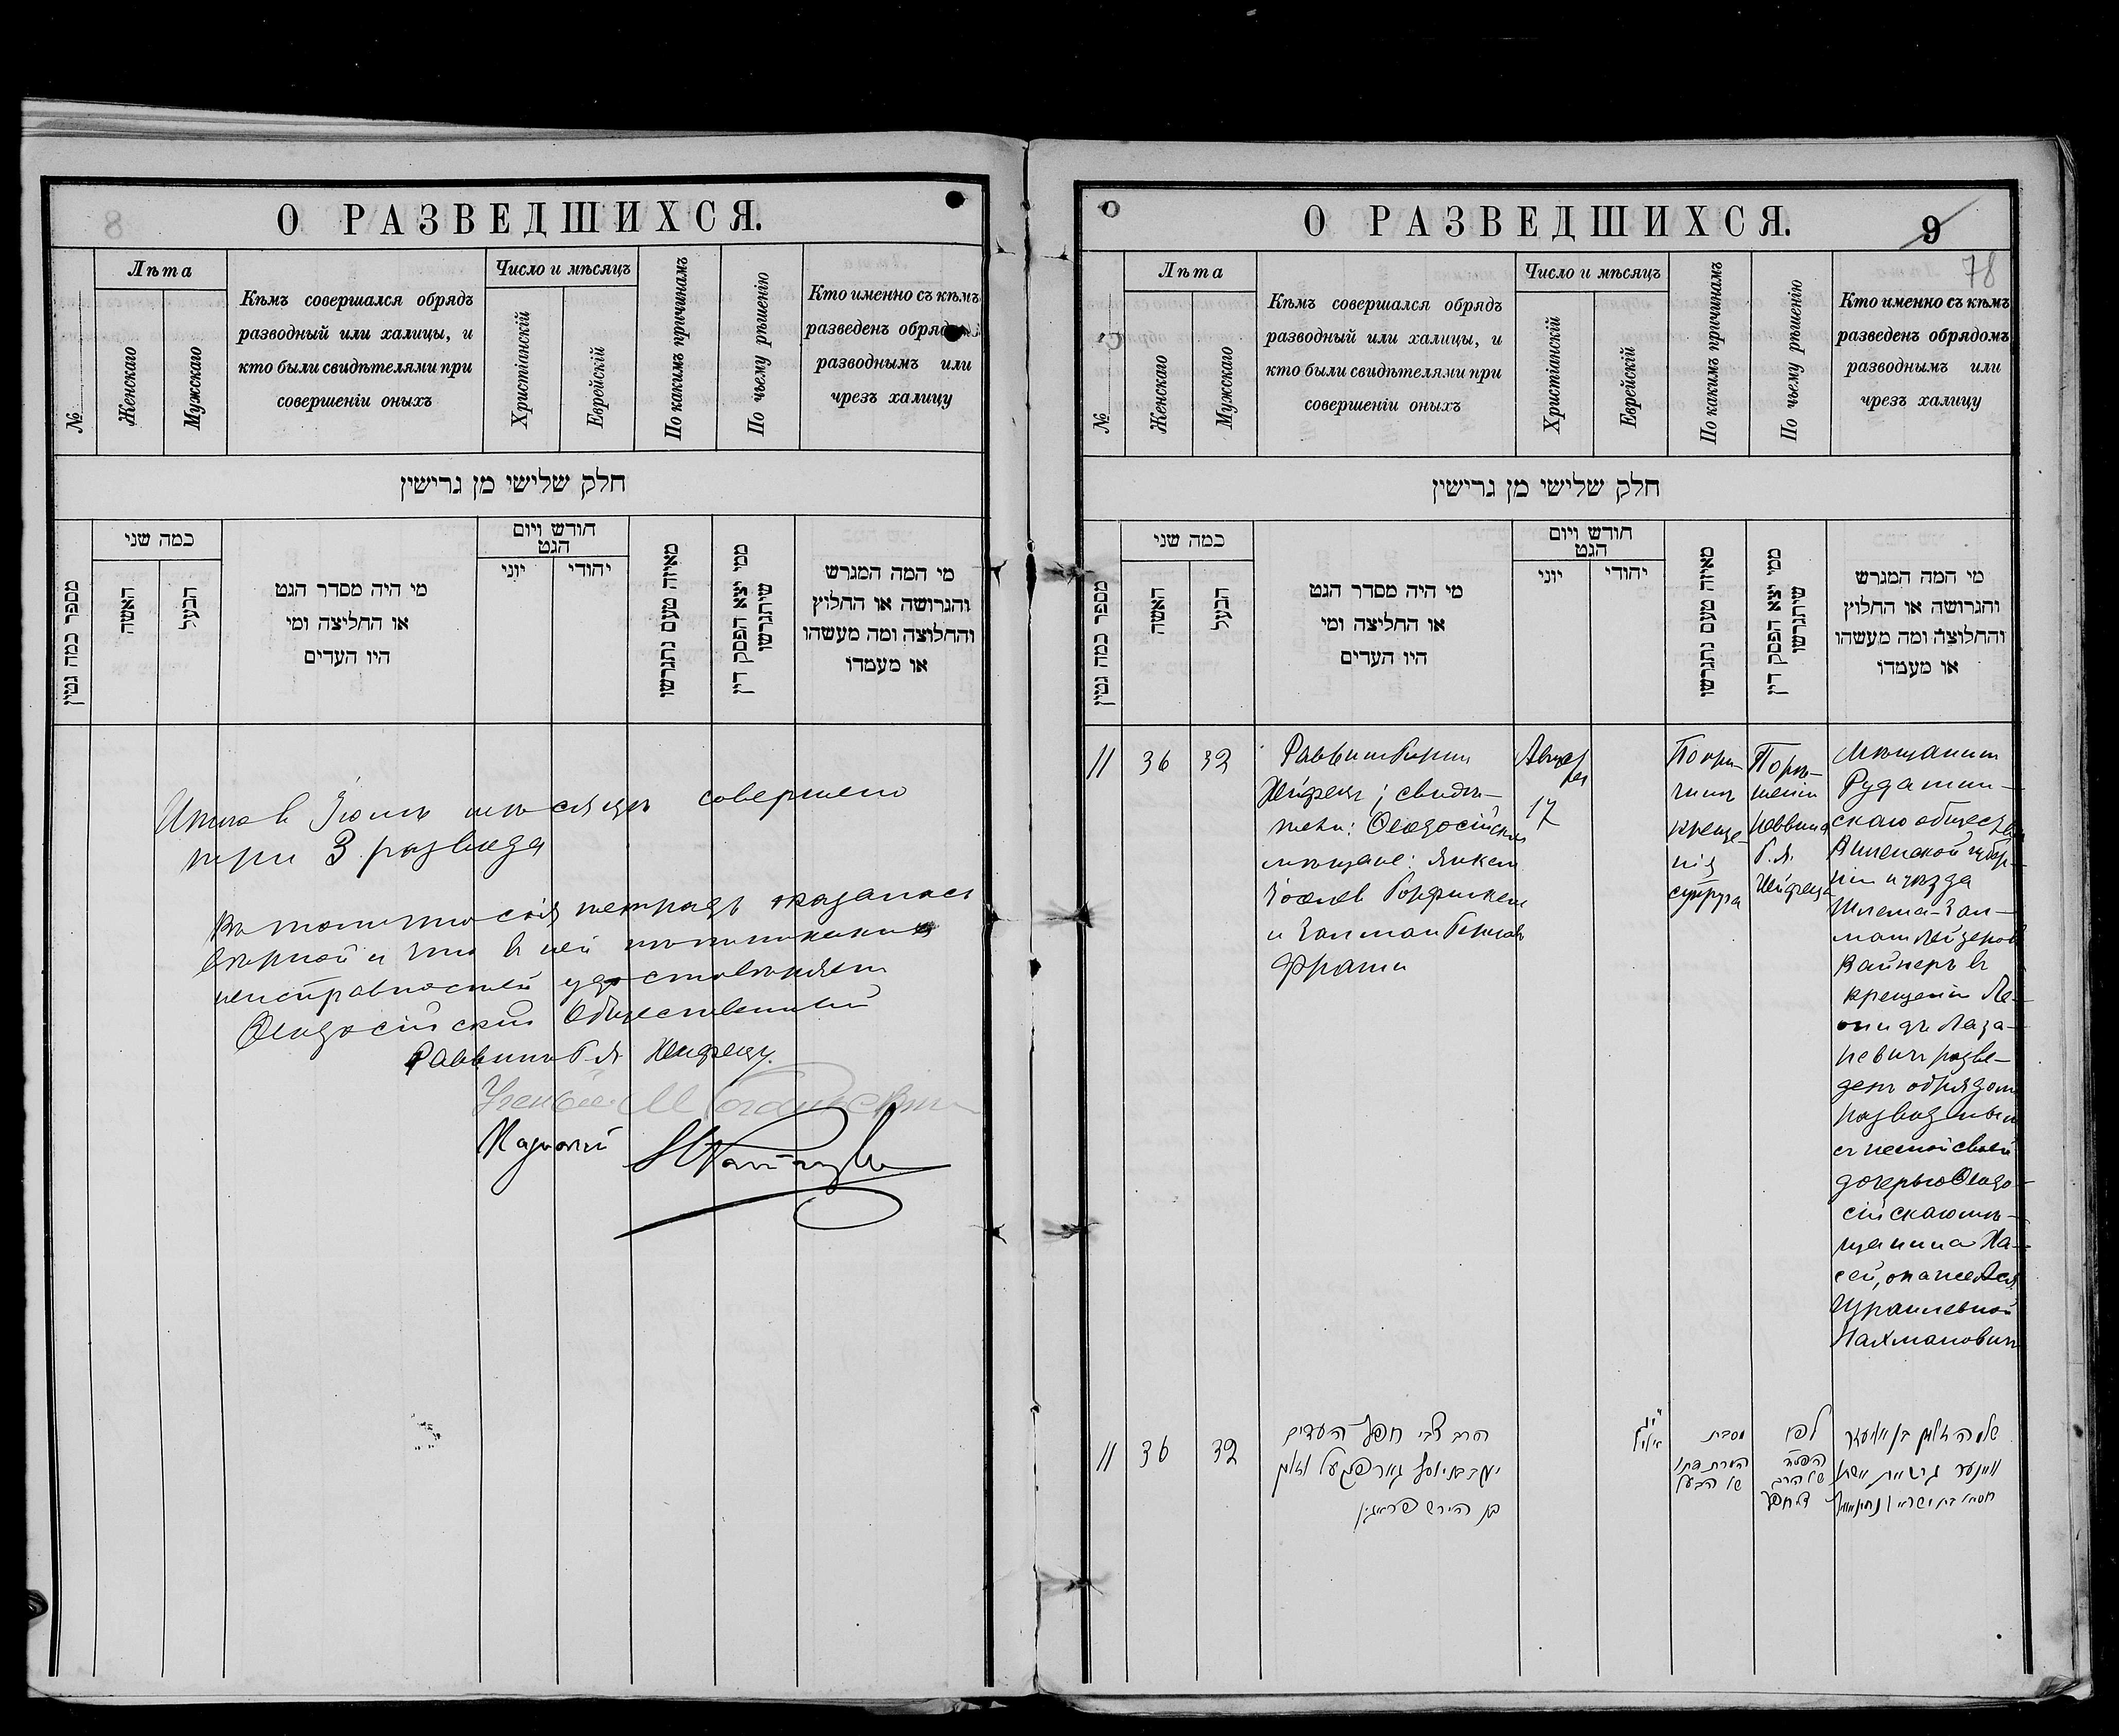 О РАЗВЕДШИХСЯ.
№
Лѣта
Женскаго
Мужскаго
Кѣмъ совершался обрядъ
разводный или халицы, и
кто были свидѣтелями при
совершеніи оныхъ
Число и мѣсяцъ
Христіанскій
Еврейскій
По какимъ причинамъ
По чьему рѣшенію
Кто именно съ кѣмъ
разведенъ обрядомъ
разводнымъ или
чрезъ халицу
חלק שלישי מן גרישין
מספר כמה גטין
כמה שני
האשה
הבעל
מי היה מסדר הגט
או החליצה ומי
היו העדים
חודש ויום
הגט
יוני
יהודי
מאיזה טעם נתגרשו
ממי יצא הפסק דין
שיתגרשו
מי המה המגרש
והגרושה או החלוץ
והחלוצה ומה מעשהו
או מעמדו
Итого в Іюлѣ мѣсяцѣ совершено
три 3 развода
сія тетрадь оказалась
вѣрной и что в ней
удостовѣряем
Ѳеодосійскій Общественный
Раввинъ Б. Я. Хейфецъ
Ученый
Казначей
О РАЗВЕДШИХСЯ.
9
78
№
Лѣта
Женскаго
Мужскаго
Кѣмъ совершался обрядъ
разводный или халицы, и
кто были свидѣтелями при
совершеніи оныхъ
Число и мѣсяцъ
Христіанскій
Еврейскій
По какимъ причинамъ
По чьему рѣшенію
Кто именно съ кѣмъ
разведенъ обрядомъ
разводнымъ или
чрезъ халицу
חלק שלישי מן גרישין
מספר כמה גטין
כמה שני
האשה
הבעל
מי היה מסדר הגט
או החליצה ומי
היו העדים
חודש ויום
הגט
יוני
יהודי
מאיזה טעם נתגרשו
ממי יצא הפסק דין
שיתגרשו
מי המה המגרש
והגרושה או החלוץ
והחלוצה ומה מעשהו
או מעמדו
11
36
32
Раввин
Хейфец; свидѣ-
тели: Ѳеодосійскіе
мѣщане:
и Залман
Августа
17
По при-
чинѣ
креще-
нія
супруга
По рѣ-
шенію
Раввина
Б. Я.
Хейфеца
Мѣщанин
Рудамин-
скаго общества
Виленской губер-
ніи и уѣзда
Шлема-Зал-
ман Лейзеров
Вайнеръ в
крещеніи Ле-
онидъ Лаза-
ревич разве-
ден обрядом
разводным
с женой своей
дочерью Ѳеодо-
сійскаго мѣ-
щанина Ха-
сей, она же Ася
Израилевной
Нахманович
11
36
32
הרב צבי חפץ העדים
בן הירש
אלול
מסבת
המרת דתו
של הבעל
לפי
של הרב
חפץ
שלמה זלמן בן